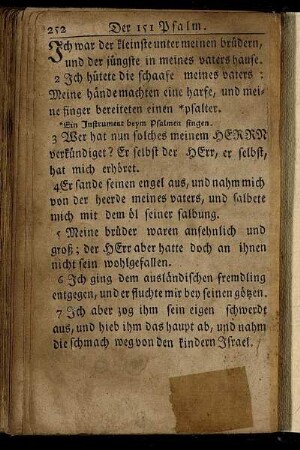 252 Der 151 Psalm.
Ich war der kleinste unter meinen brüdern,
und der jüngste in meines vaters hause.
2 Ich hütete die schaafe meines vaters:
Meine hände machten eine harfe, und mei-
ne finger bereiteten einen *psalter.
*Ein Instrument beym Psalmen singen.
3 Wer hat nun solches meinem HERRN
verkündiget? Er selbst der HErr, er selbst,
hat mich erhöret.
4 Er sande seinen engel aus, und nahm mich
von der heerde meines vaters, und salbete
mich mit dem öl seiner salbung.
5 Meine brüder waren ansehnlich und
groß; der HErr aber hatte doch an ihnen
nicht sein wohlgefallen.
6 Ich ging dem ausländischen fremdling
entgegen, und er fluchte mir bey seinen götzen.
7 Ich aber zog ihm sein eigen schwerdt
aus, und hieb ihm das haupt ab, und nahm
die schmach weg von den kindern Israel.